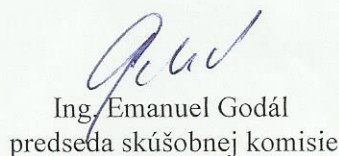 Ing. Emanuel Godál
predseda skúšobnej komisie